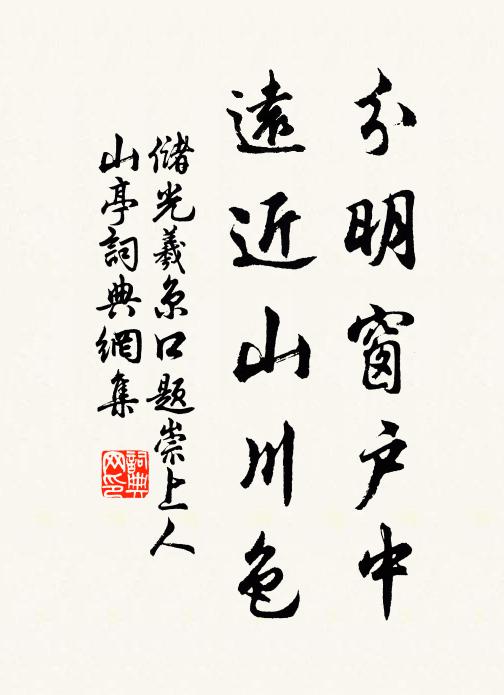 分明窗户中
遠近山川色
儲光羲京口題崇上人
山亭詞典網集
詞典
网印